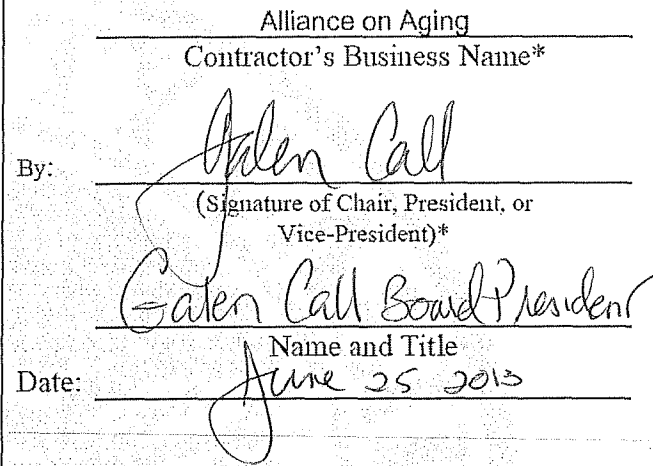 Alliance on Aging
Contractor's Business Name*
By: Galen Call
(Signature of Chair, President, or
Vice-President)*
Galen Call Board President
Name and Title
Date: June 25 2013